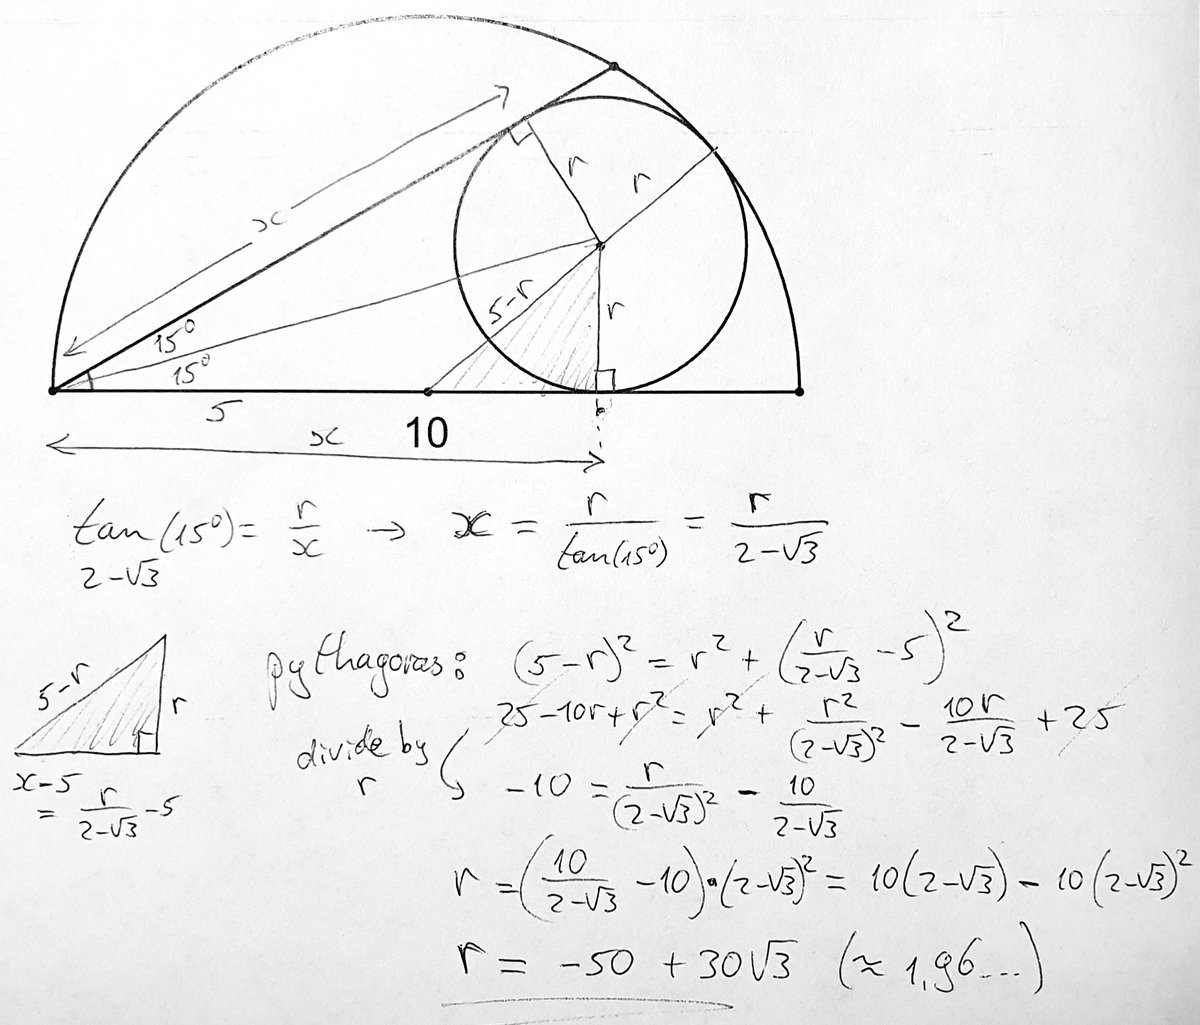 x
r
r
5-r
r
15°
15°
5
x
10
tan(15°) = r/x → x = r/tan(15°) = r/(2-√3)
2-√3
pythagoras: (5-r)² = r² + (r/(2-√3) - 5)²
25-10r+r² = r² + r²/(2-√3)² - 10r/(2-√3) + 25
5-r
r
x-5
= r/(2-√3) - 5
divide by
r
-10 = r/(2-√3)² - 10/(2-√3)
r = (10/(2-√3) - 10)·(2-√3)² = 10(2-√3) - 10(2-√3)²
r = -50 + 30√3 (≈ 1,96...)